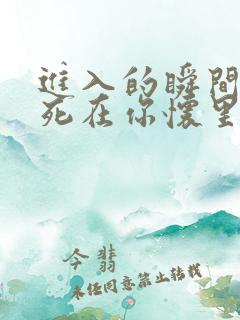 進入的瞬間
死在你懷里
今翡
未经同意禁止转载